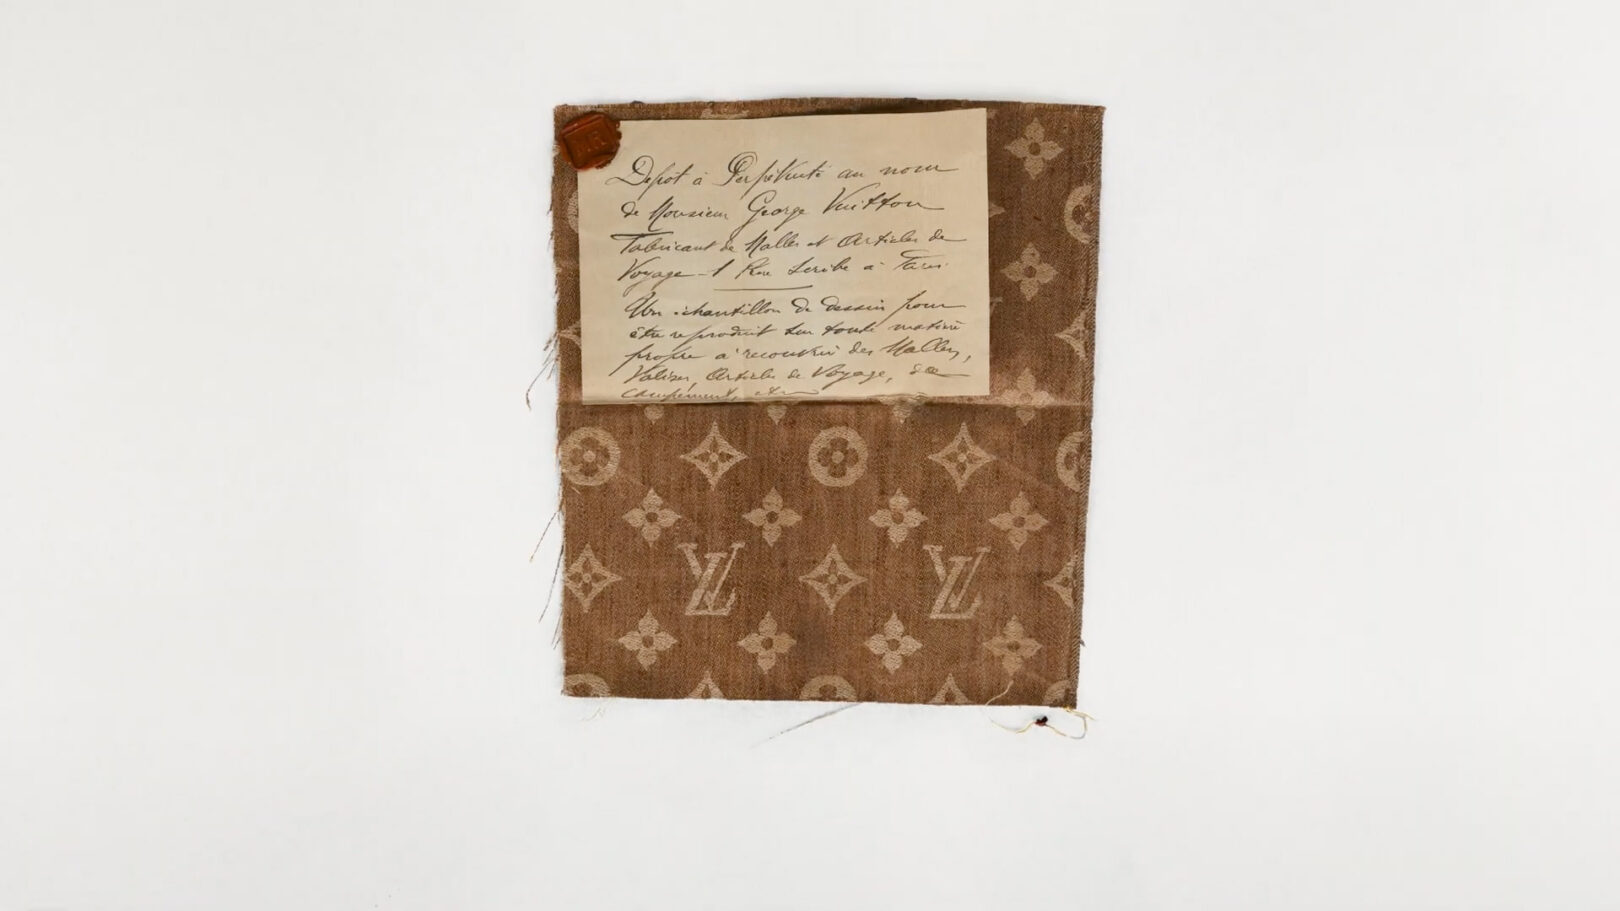 Dépot à Perpétuité au nom
de Monsieur George Vuitton
Fabricant de Malles et Articles de
Voyage – 1 Rue Scribe à Paris.
Un échantillon de dessin pour
être reproduit sur toute matière
propre à recouvrir des Malles,
Valises, Articles de Voyage, de
campement, etc
LV LV